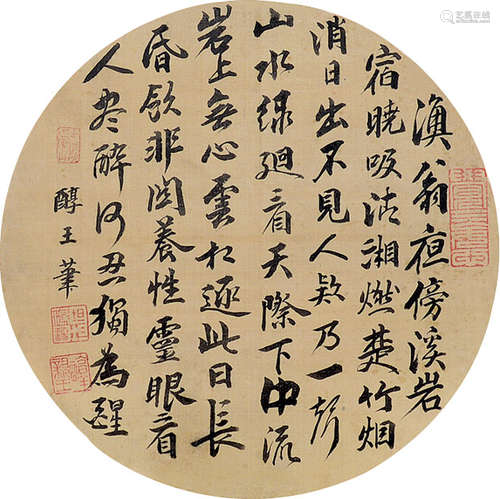 漁翁夜傍溪岩
宿曉汲清湘燃楚竹烟
消日出不見人欸乃一聲
山水緑廻看天際下中流
岩上無心雲相逐此日長
昏飲非関養性靈眼看
人盡醉何忍獨為醒
醇王筆